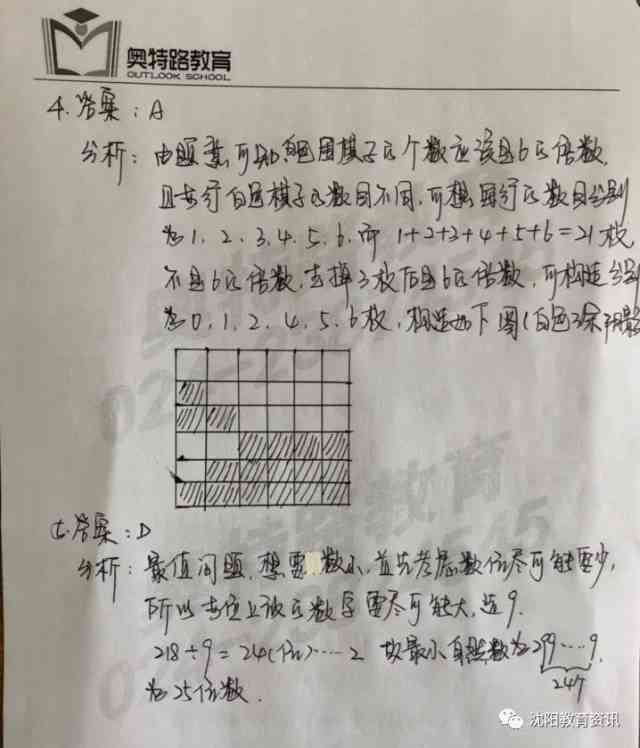 奥特路教育
OUTLOOK SCHOOL
4. 答案：A
分析：由题意可知，白色围棋子的个数应该是6的倍数，
且每行白色棋子的数目不同，可想到每行的数目分别
为1、2、3、4、5、6. 而 1+2+3+4+5+6=21枚
不是6的倍数，去掉3枚后是6的倍数，可构造分别
为0、1、2、4、5、6枚，构造如下图（白色
答案：D
分析：最值问题，想要 数小，首先考虑数位尽可能要少，
所以每位上放的数字要尽可能大，选9.
218÷9=24(位)……2 故最小自然数为299…9.
24个
为25位数.
特路教育
沈阳教育资讯